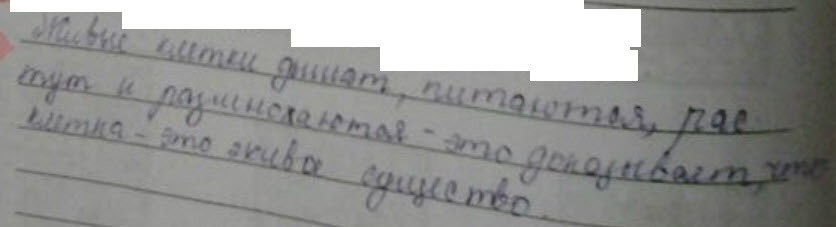 Живые клетки дышат, питаются, рас
тут и размножаются - это доказывает, что
клетка - это живое существо.